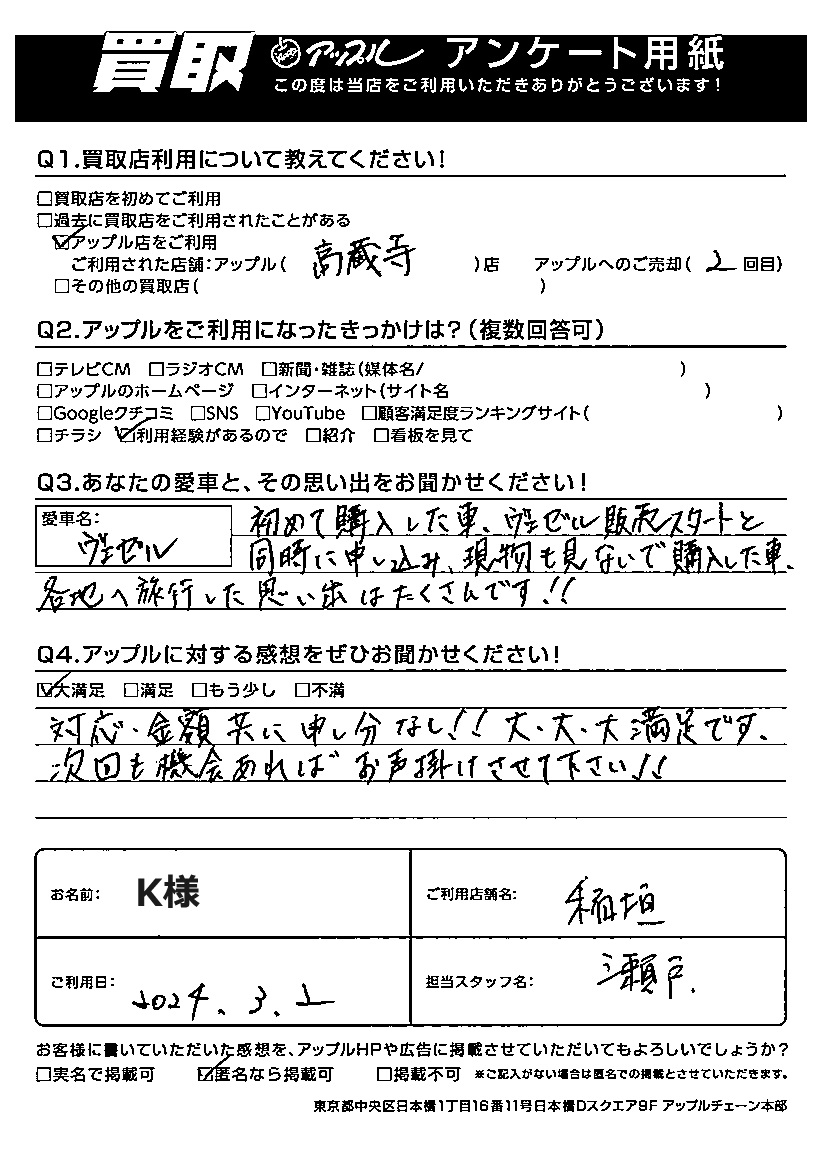 買取 アップル アンケート用紙
この度は当店をご利用いただきありがとうございます!
Q1.買取店利用について教えてください!
□買取店を初めてご利用
□過去に買取店をご利用されたことがある
☑アップル店をご利用
ご利用された店舗:アップル( 高蔵寺 )店 アップルへのご売却( 2 回目)
□その他の買取店( )
Q2.アップルをご利用になったきっかけは?(複数回答可)
□テレビCM □ラジオCM □新聞・雑誌(媒体名/ )
□アップルのホームページ □インターネット(サイト名 )
□Googleクチコミ □SNS □YouTube □顧客満足度ランキングサイト( )
□チラシ ☑利用経験があるので □紹介 □看板を見て
Q3.あなたの愛車と、その思い出をお聞かせください!
愛車名:
ヴェゼル
初めて購入した車、ヴェゼル販売スタートと
同時に申し込み、現物も見ないで購入した車、
各地へ旅行した思い出はたくさんです!!
Q4.アップルに対する感想をぜひお聞かせください!
☑大満足 □満足 □もう少し □不満
対応・金額共に申し分なし!! 大・大・大満足です、
次回も機会あればお声掛けさせて下さい!!
お名前: K様 ご利用店舗名: 稲垣
ご利用日: 2024.3.2 担当スタッフ名: 瀬戸.
お客様に書いていただいた感想を、アップルHPや広告に掲載させていただいてもよろしいでしょうか?
□実名で掲載可 ☑匿名なら掲載可 □掲載不可 ※ご記入がない場合は匿名での掲載とさせていただきます。
東京都中央区日本橋1丁目16番11号日本橋Dスクエア9F アップルチェーン本部